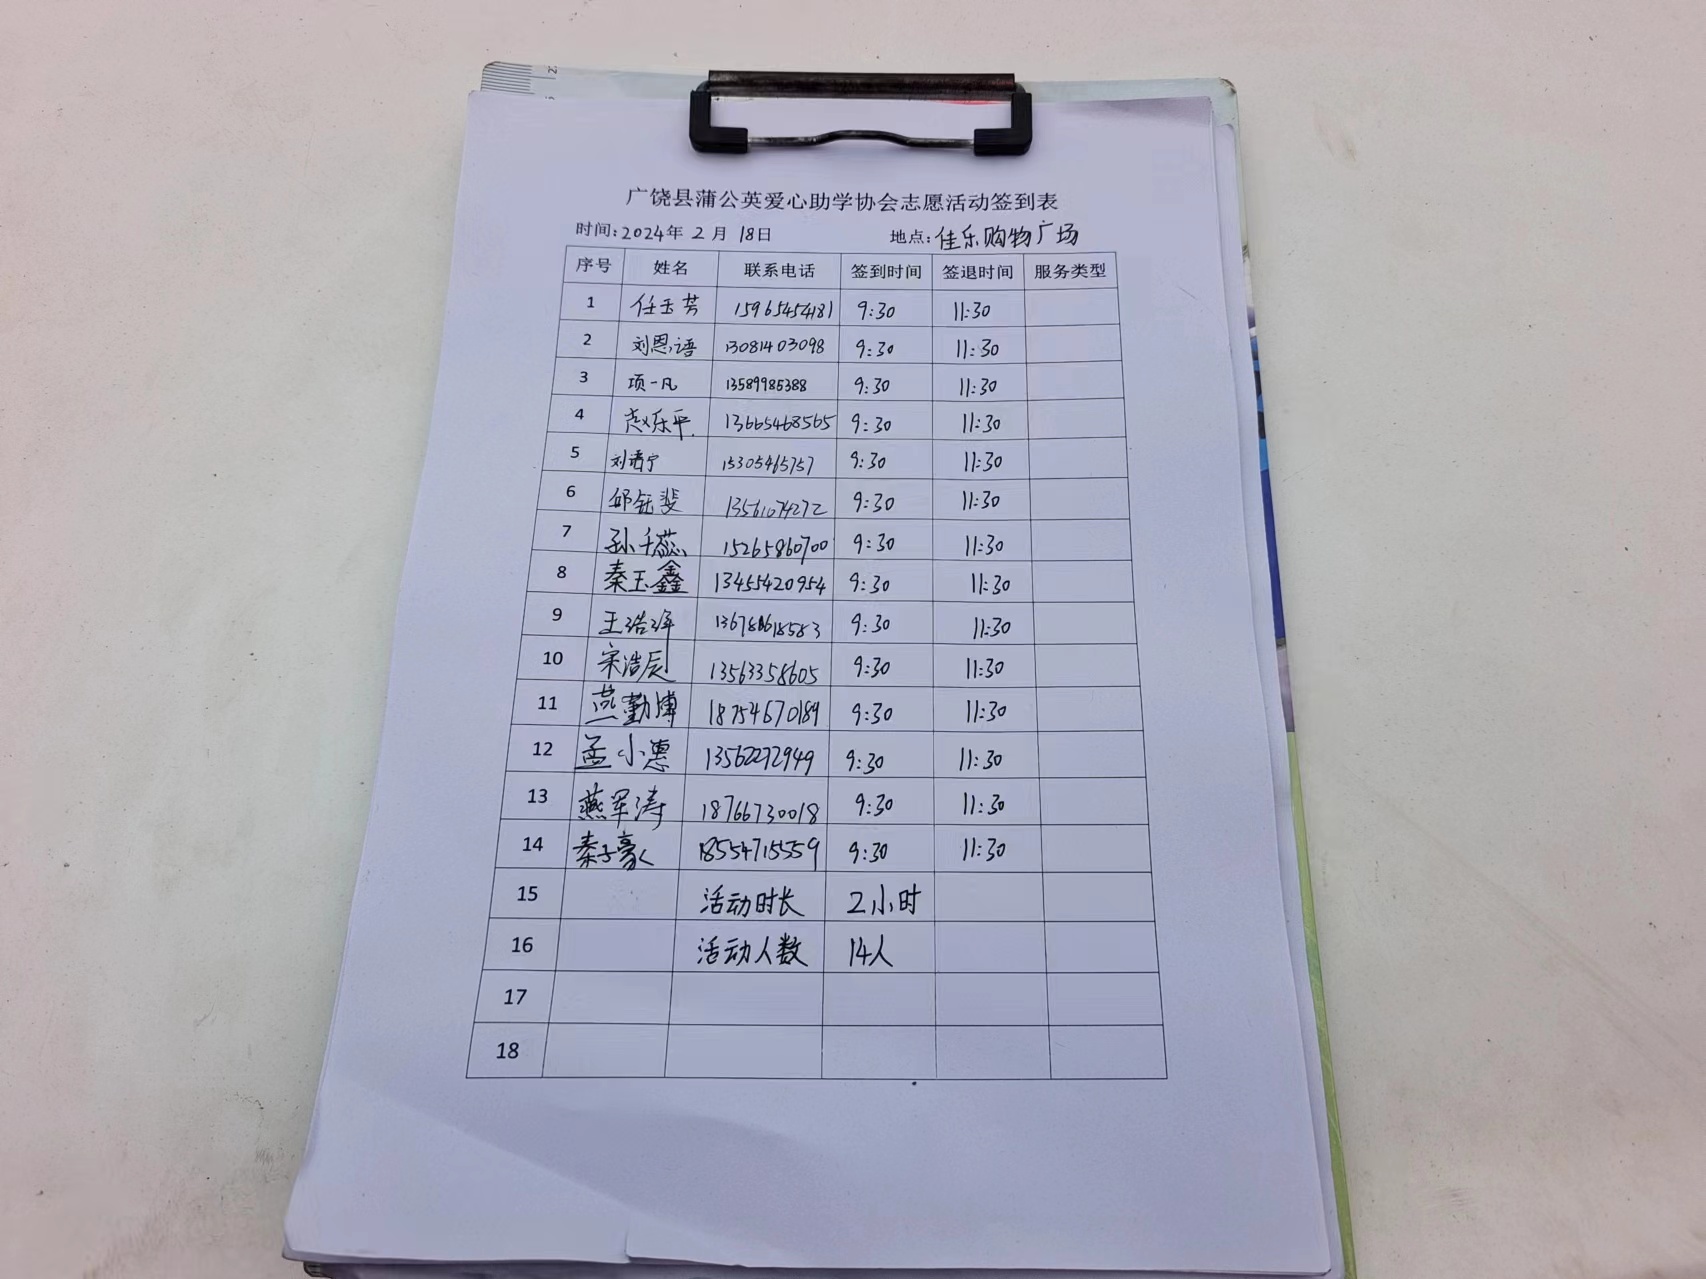 广饶县蒲公英爱心助学协会志愿活动签到表
时间:2024年 2 月 18日 地点:佳乐购物广场
序号 姓名 联系电话 签到时间 签退时间 服务类型
1 任玉芳 15965454181 9:30 11:30
2 刘恩语 13081403098 9:30 11:30
3 项一凡 13589985388 9:30 11:30
4 赵乐平 13665468565 9:30 11:30
5 刘宁 15305465757 9:30 11:30
6 邱钰斐 13561074272 9:30 11:30
7 孙千蕊 15265860700 9:30 11:30
8 秦玉鑫 13455420954 9:30 11:30
9 王浩泽 9:30 11:30
10 宋浩辰 13563358605 9:30 11:30
11 燕勤博 18754670189 9:30 11:30
12 孟小惠 13562272949 9:30 11:30
13 燕军涛 18766730018 9:30 11:30
14 秦子豪 18554715559 9:30 11:30
15 活动时长 2小时
16 活动人数 14人
17
18